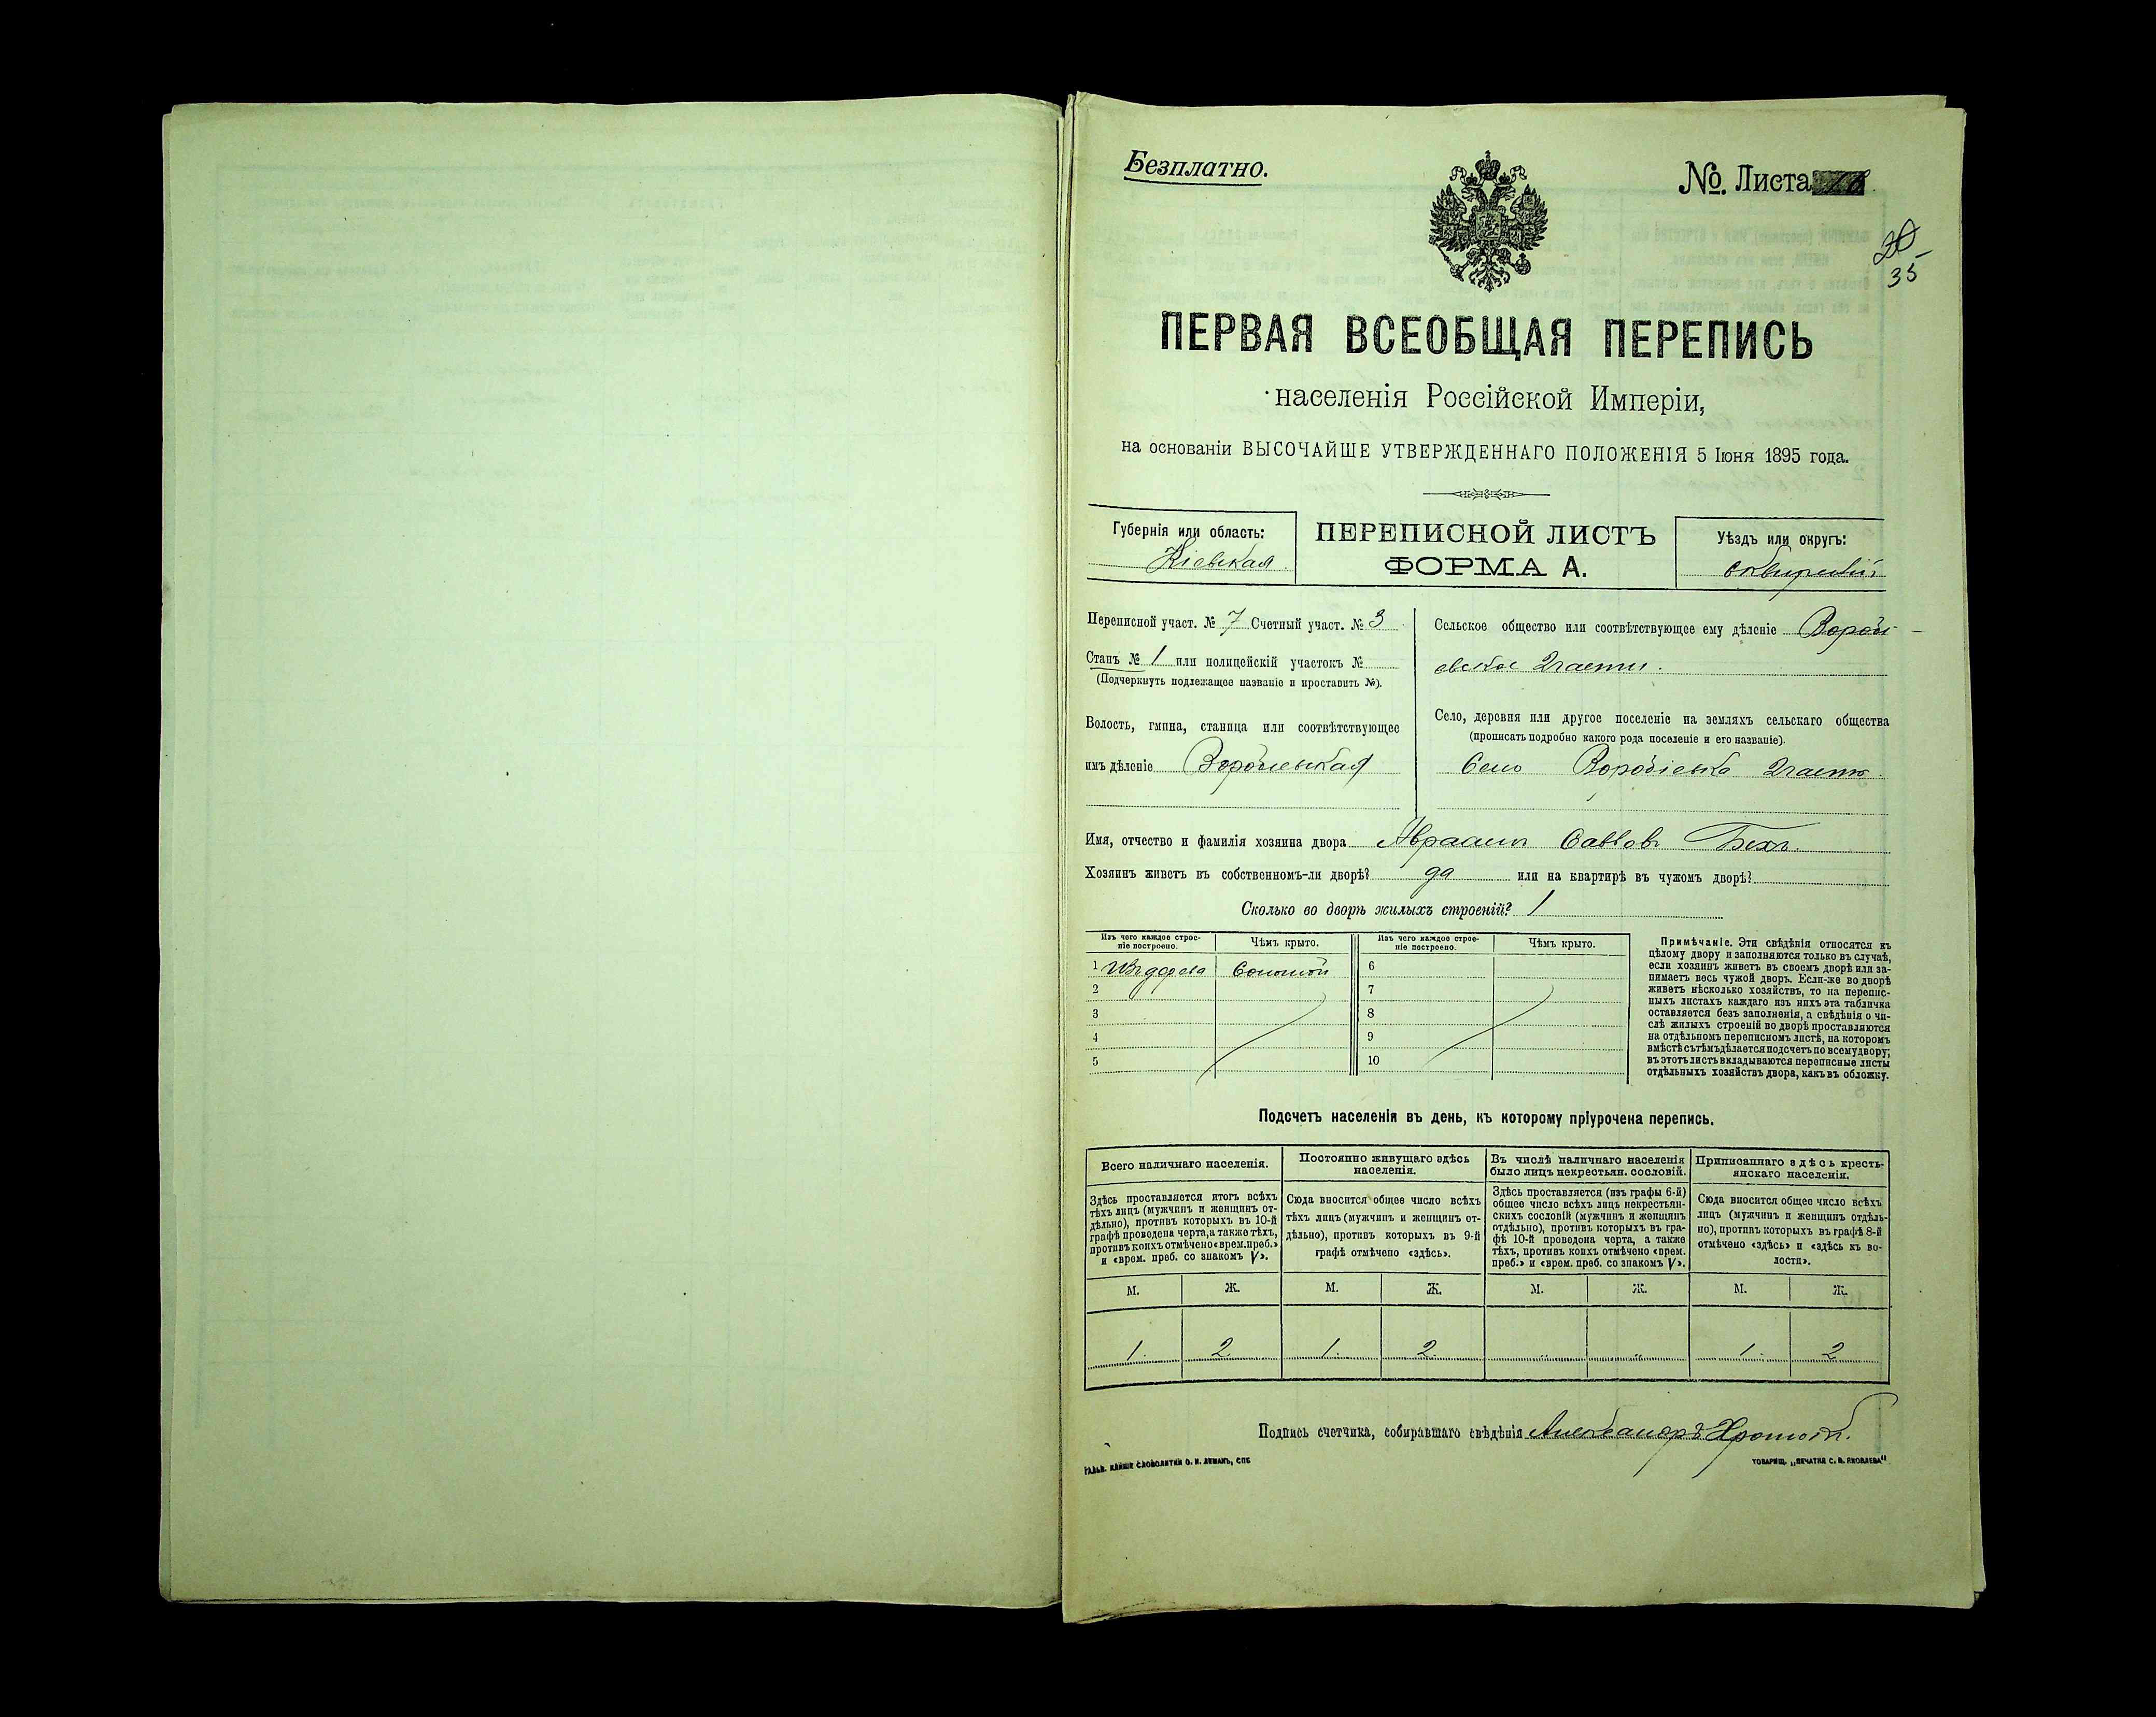 Безплатно.
№ Листа
20
35
ПЕРВАЯ ВСЕОБЩАЯ ПЕРЕПИСЬ
населенія Россійской Имперіи,
на основаніи ВЫСОЧАЙШЕ УТВЕРЖДЕННАГО ПОЛОЖЕНІЯ 5 Іюня 1895 года.
Губернія или область:
Кіевская
ПЕРЕПИСНОЙ ЛИСТЪ
ФОРМА А.
Уѣздъ или округъ:
Сквирскій
Переписной участ. № 7 Счетный участ. № 3
Станъ № 1 или полицейскій участокъ №
(Подчеркнуть подлежащее названіе и проставить №).
Волость, гмина, станица или соотвѣтствующее
имъ дѣленіе
Сельское общество или соотвѣтствующее ему дѣленіе Вороби-
евское 2 части.
Село, деревня или другое поселеніе на земляхъ сельскаго общества
(прописать подробно какого рода поселеніе и его названіе).
Село Воробіевка 2 часть.
Имя, отчество и фамилія хозяина двора Авраамъ Саввовъ Бехъ.
Хозяинъ живетъ въ собственномъ-ли дворѣ? да или на квартирѣ въ чужомъ дворѣ?
Сколько во дворѣ жилыхъ строеній? 1
Изъ чего каждое строе-
ніе построено.
Чѣмъ крыто.
Изъ чего каждое строе-
ніе построено.
Чѣмъ крыто.
1 Изъ дерева Соломой
2
3
4
5
6
7
8
9
10
Примѣчаніе. Эти свѣдѣнія относятся къ
цѣлому двору и заполняются только въ случаѣ,
если хозяинъ живетъ въ своемъ дворѣ или за-
нимаетъ весь чужой дворъ. Если-же во дворѣ
живетъ нѣсколько хозяйствъ, то на перепис-
ныхъ листахъ каждаго изъ нихъ эта табличка
оставляется безъ заполненія, а свѣдѣнія о чи-
слѣ жилыхъ строеній во дворѣ проставляются
на отдѣльномъ переписномъ листѣ, на которомъ
вмѣстѣ съ тѣмъ дѣлается подсчетъ по всему двору;
въ этотъ листъ вкладываются переписные листы
отдѣльныхъ хозяйствъ двора, какъ въ обложку.
Подсчетъ населенія въ день, къ которому пріурочена перепись.
Всего наличнаго населенія.
Здѣсь проставляется итогъ всѣхъ
тѣхъ лицъ (мужчинъ и женщинъ от-
дѣльно), противъ которыхъ въ 10-й
графѣ проведена черта, а также тѣхъ,
противъ коихъ отмѣчено «врем. преб.»
и «врем. преб. со знакомъ V».
Постоянно живущаго здѣсь
населенія.
Сюда вносится общее число всѣхъ
тѣхъ лицъ (мужчинъ и женщинъ от-
дѣльно), противъ которыхъ въ 9-й
графѣ отмѣчено «здѣсь».
Въ числѣ наличнаго населенія
было лицъ некрестьян. сословій.
Здѣсь проставляется (изъ графы 6-й)
общее число всѣхъ лицъ некрестьян-
скихъ сословій (мужчинъ и женщинъ
отдѣльно), противъ которыхъ въ гра-
фѣ 10-й проведена черта, а также
тѣхъ, противъ коихъ отмѣчено «врем.
преб.» и «врем. преб. со знакомъ V».
Приписаннаго здѣсь кресть-
янскаго населенія.
Сюда вносится общее число всѣхъ
лицъ (мужчинъ и женщинъ отдѣль-
но), противъ которыхъ въ графѣ 8-й
отмѣчено «здѣсь» и «здѣсь къ во-
лости».
М. Ж. М. Ж. М. Ж. М. Ж.
1. 2. 1. 2. „ „ 1. 2
Подпись счетчика, собиравшаго свѣдѣнія Александръ
ТОВАРИЩ. „ПЕЧАТНЯ С. П. ЯКОВЛЕВА"